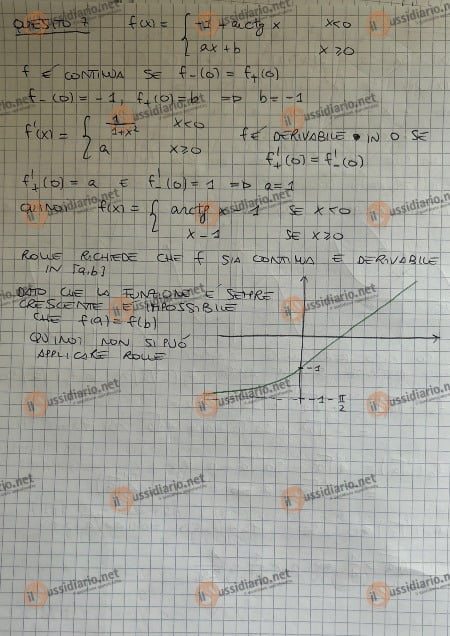 QUESITO 7 f(x) = { -1 + arctg x x<0
ax + b x ≥ 0
f È CONTINUA SE f-(0) = f+(0)
f-(0) = -1, f+(0) = b => b = -1
f'(x) = { 1/(1+x²) x<0
a x≥0
f È DERIVABILE IN 0 SE
f'+(0) = f'-(0)
f'+(0) = a E f'-(0) = 1 => a=1
QUINDI f(x) = { arctg x - 1 SE x<0
x - 1 SE x≥0
ROLLE RICHIEDE CHE f SIA CONTINUA E DERIVABILE
IN [a,b]
DATO CHE LA FUNZIONE È SEMPRE
CRESCENTE È IMPOSSIBILE
CHE f(a) = f(b)
QUINDI NON SI PUÒ
APPLICARE ROLLE
-1
-1 - π/2
ilSussidiario.net